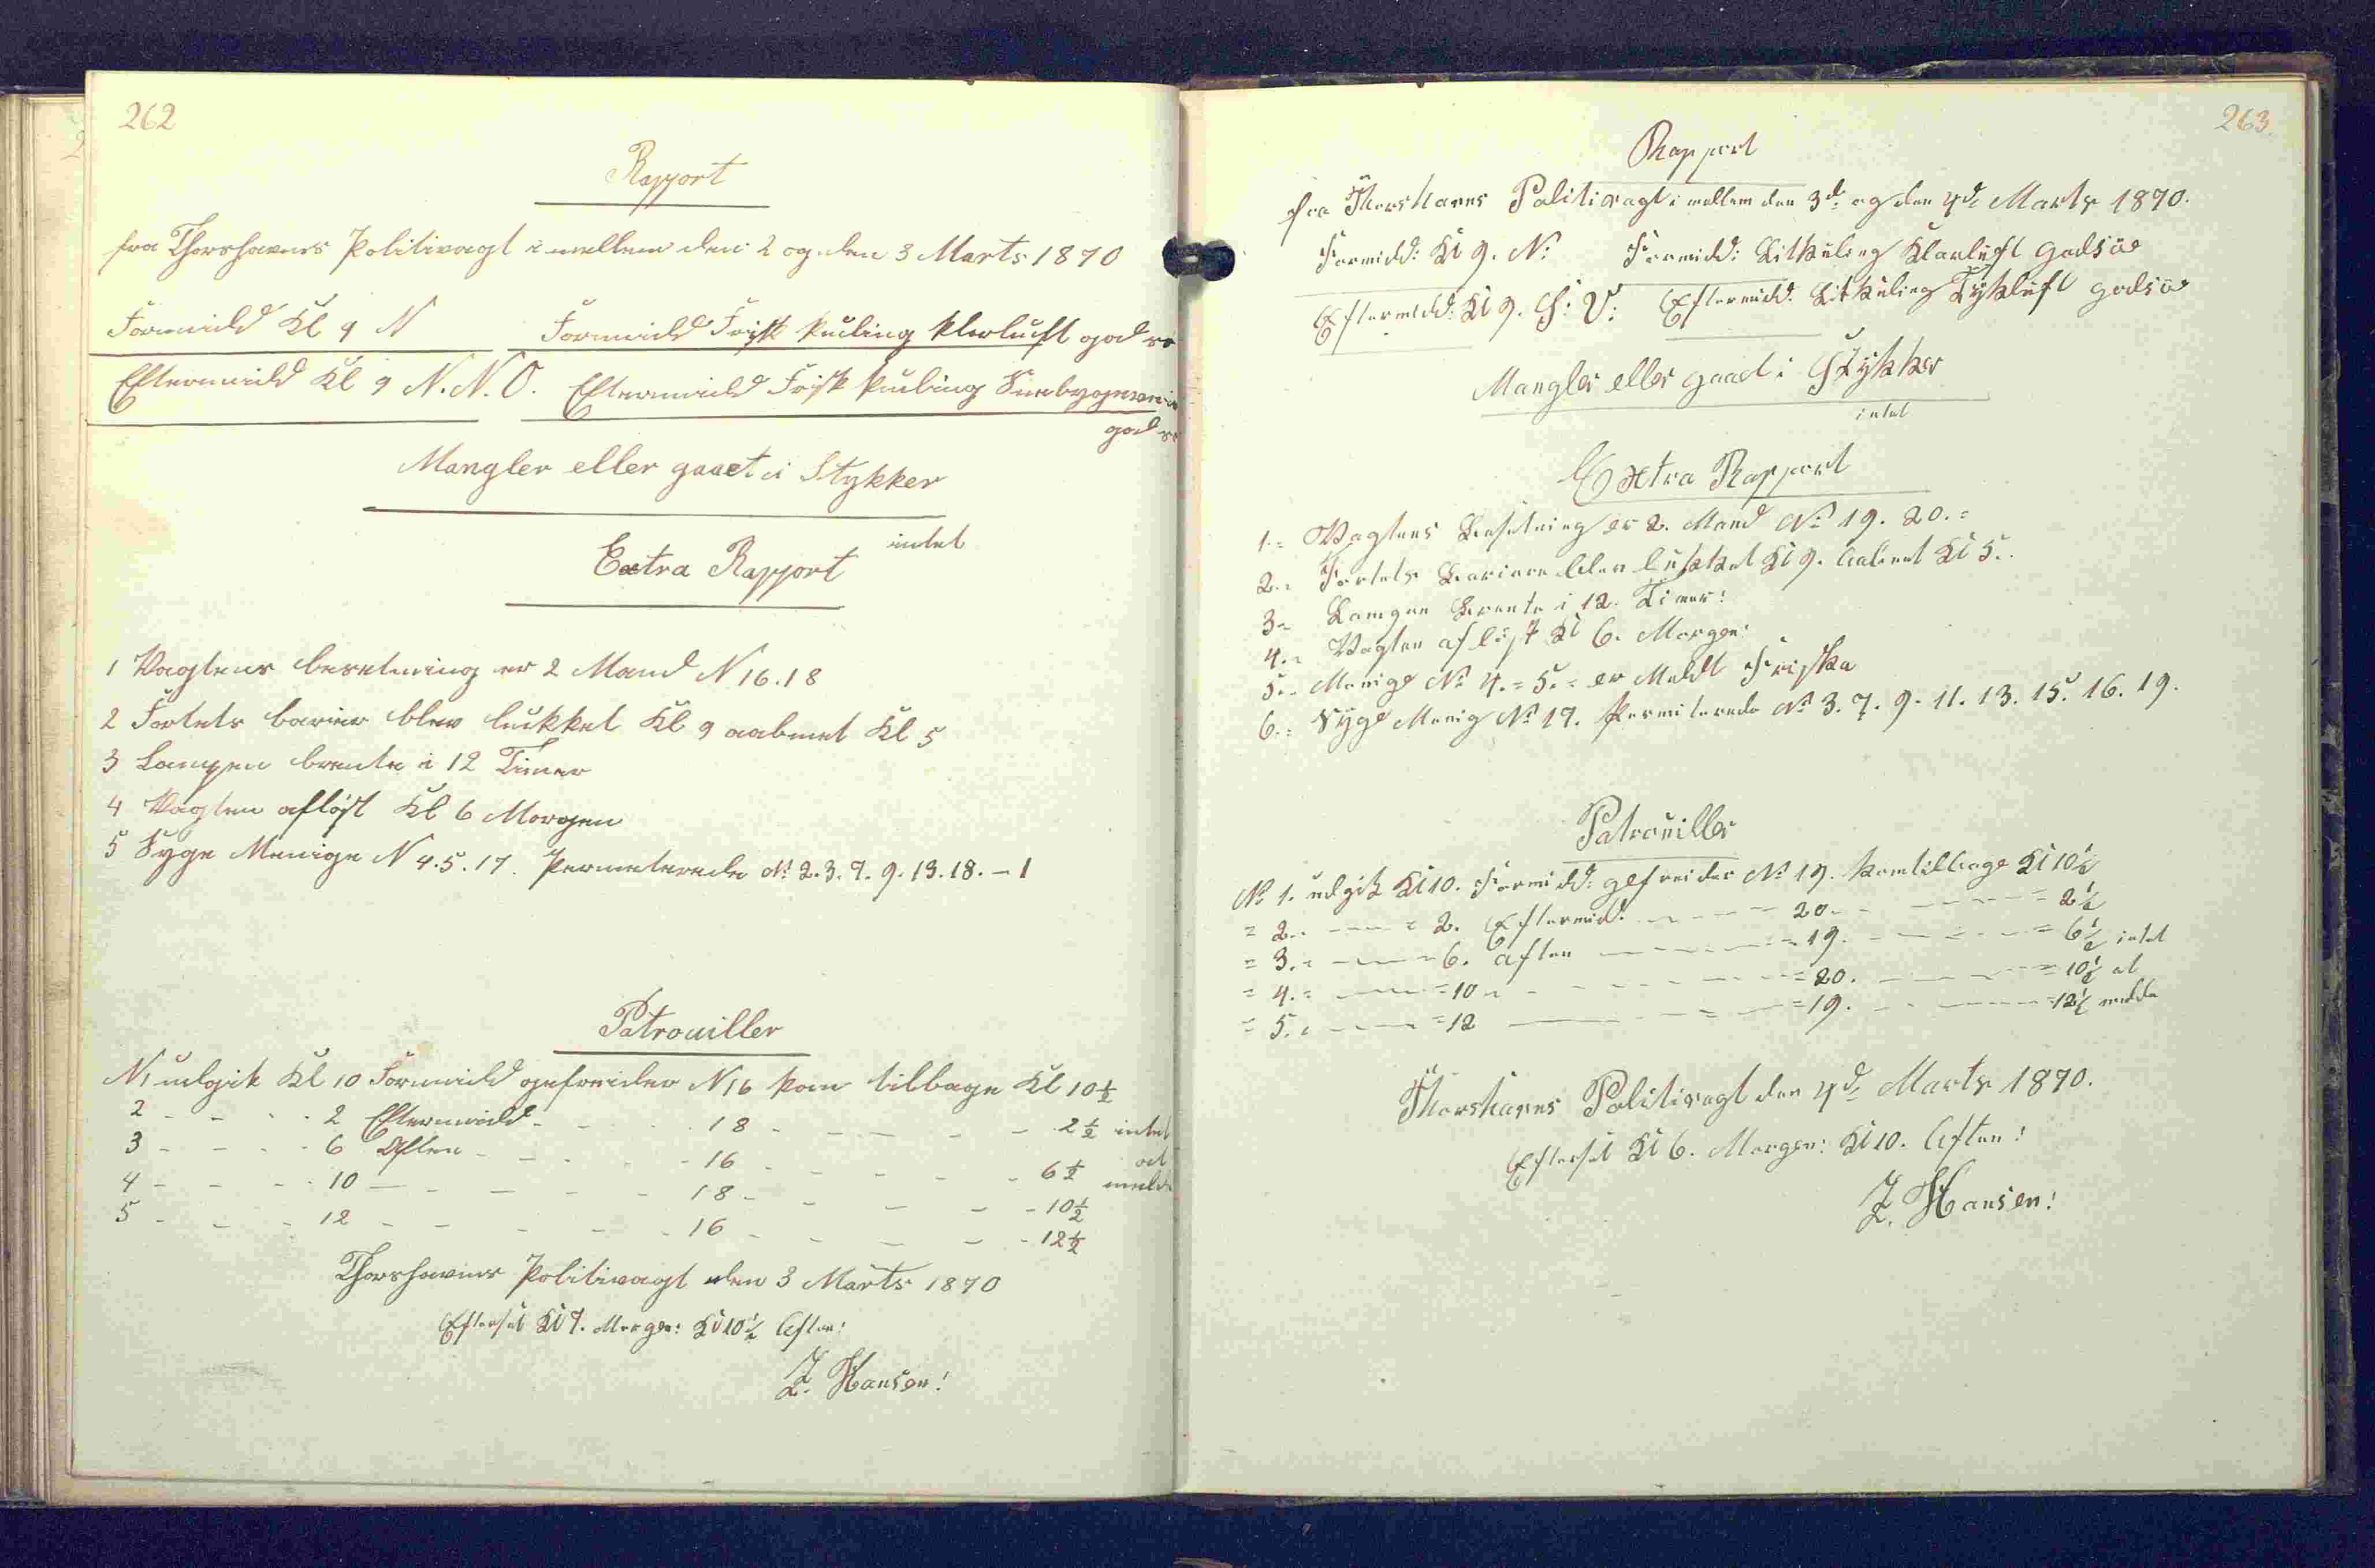 262
Rapport
fra Thorshavns Politivagt i mellem den 2 og den 3 Marts 1870
Formidd Kl 9 N Formidd Frisk kuling klarluft god
Eftermidd Kl 9 N.N.O. Eftermidd Frisk kuling
god
Mangler eller gaaet i Stykker
intet
Extra Rapport
1 Vagtens besetning er 2 Mand N 16.18
2 Fortets barier blev lukket Kl 9 aabnet Kl 5
3 Lampen brente i 12 Timer
4 Vagten afløst Kl 6 Morgen
5 Syge Menige N 4.5.17. Permeterede No 2.3.7.9.13.18. – 1
Patrouiller
N1 udgik Kl 10 Formidd gefreider N16 kom tilbage Kl 10½
2 - - - - 2 Eftermidd - - - 18 - - - - - 2½ intet
3 - - - - 6 Aften - - - - 16 - - - - - 6½ at
4 - - - - 10 - - - - - 18 - - - - - 10½ melde
5 - - - - 12 - - - - - 16 - - - - - 12½
Thorshavns Politivagt den 3 Marts 1870
Efterset Kl 7. Morgen: Kl 10½ Aften:
Z. Hansen!
263.
Rapport
fra Thorshavns Politivagt i mellem den 3d og den 4de Marts 1870.
Formidd: Kl 9. N: Formidd: Litkuling Klarluft godsüe
Eftermidd: Kl 9. S: V: Eftermidd: Litkuling Tykluft godsüe
Mangler eller gaaet i Stykker
intet
Extra Rapport
1.= Vagtens Besetning er 2. Mand No 19. 20.=
2.= Fortets Bariere blev lukket Kl 9. Aabnet Kl 5.
3= Lampen Brente i 12. Timer!
4.= Vagten afløst Kl 6. Morgen!
5.= Menige No 4.= 5.= er Meldt Friska
6.= Syge Menig No 17. Permiterede No 3. 7. 9. 11. 13. 15. 16. 19.
Patrouiller
No 1. udgik Kl 10. Formidd: gefreider No 19. kom tilbage Kl 10½
= 2.= - - - = 2. Eftermid: - - - - 20. - - - - = 2½
= 3.= - - - = 6. Aften - - - - = 19. - - - - = 6½ intet
= 4.= - - - = 10 = - - - - = 20. - - - - = 10½ at
= 5.= - - - = 12 - - - - = 19. - - - - = 12½ melde
Thorshavns Politivagt den 4de Marts 1870.
Efterset Kl 6. Morgen: Kl 10. Aften!
Z. Hansen!